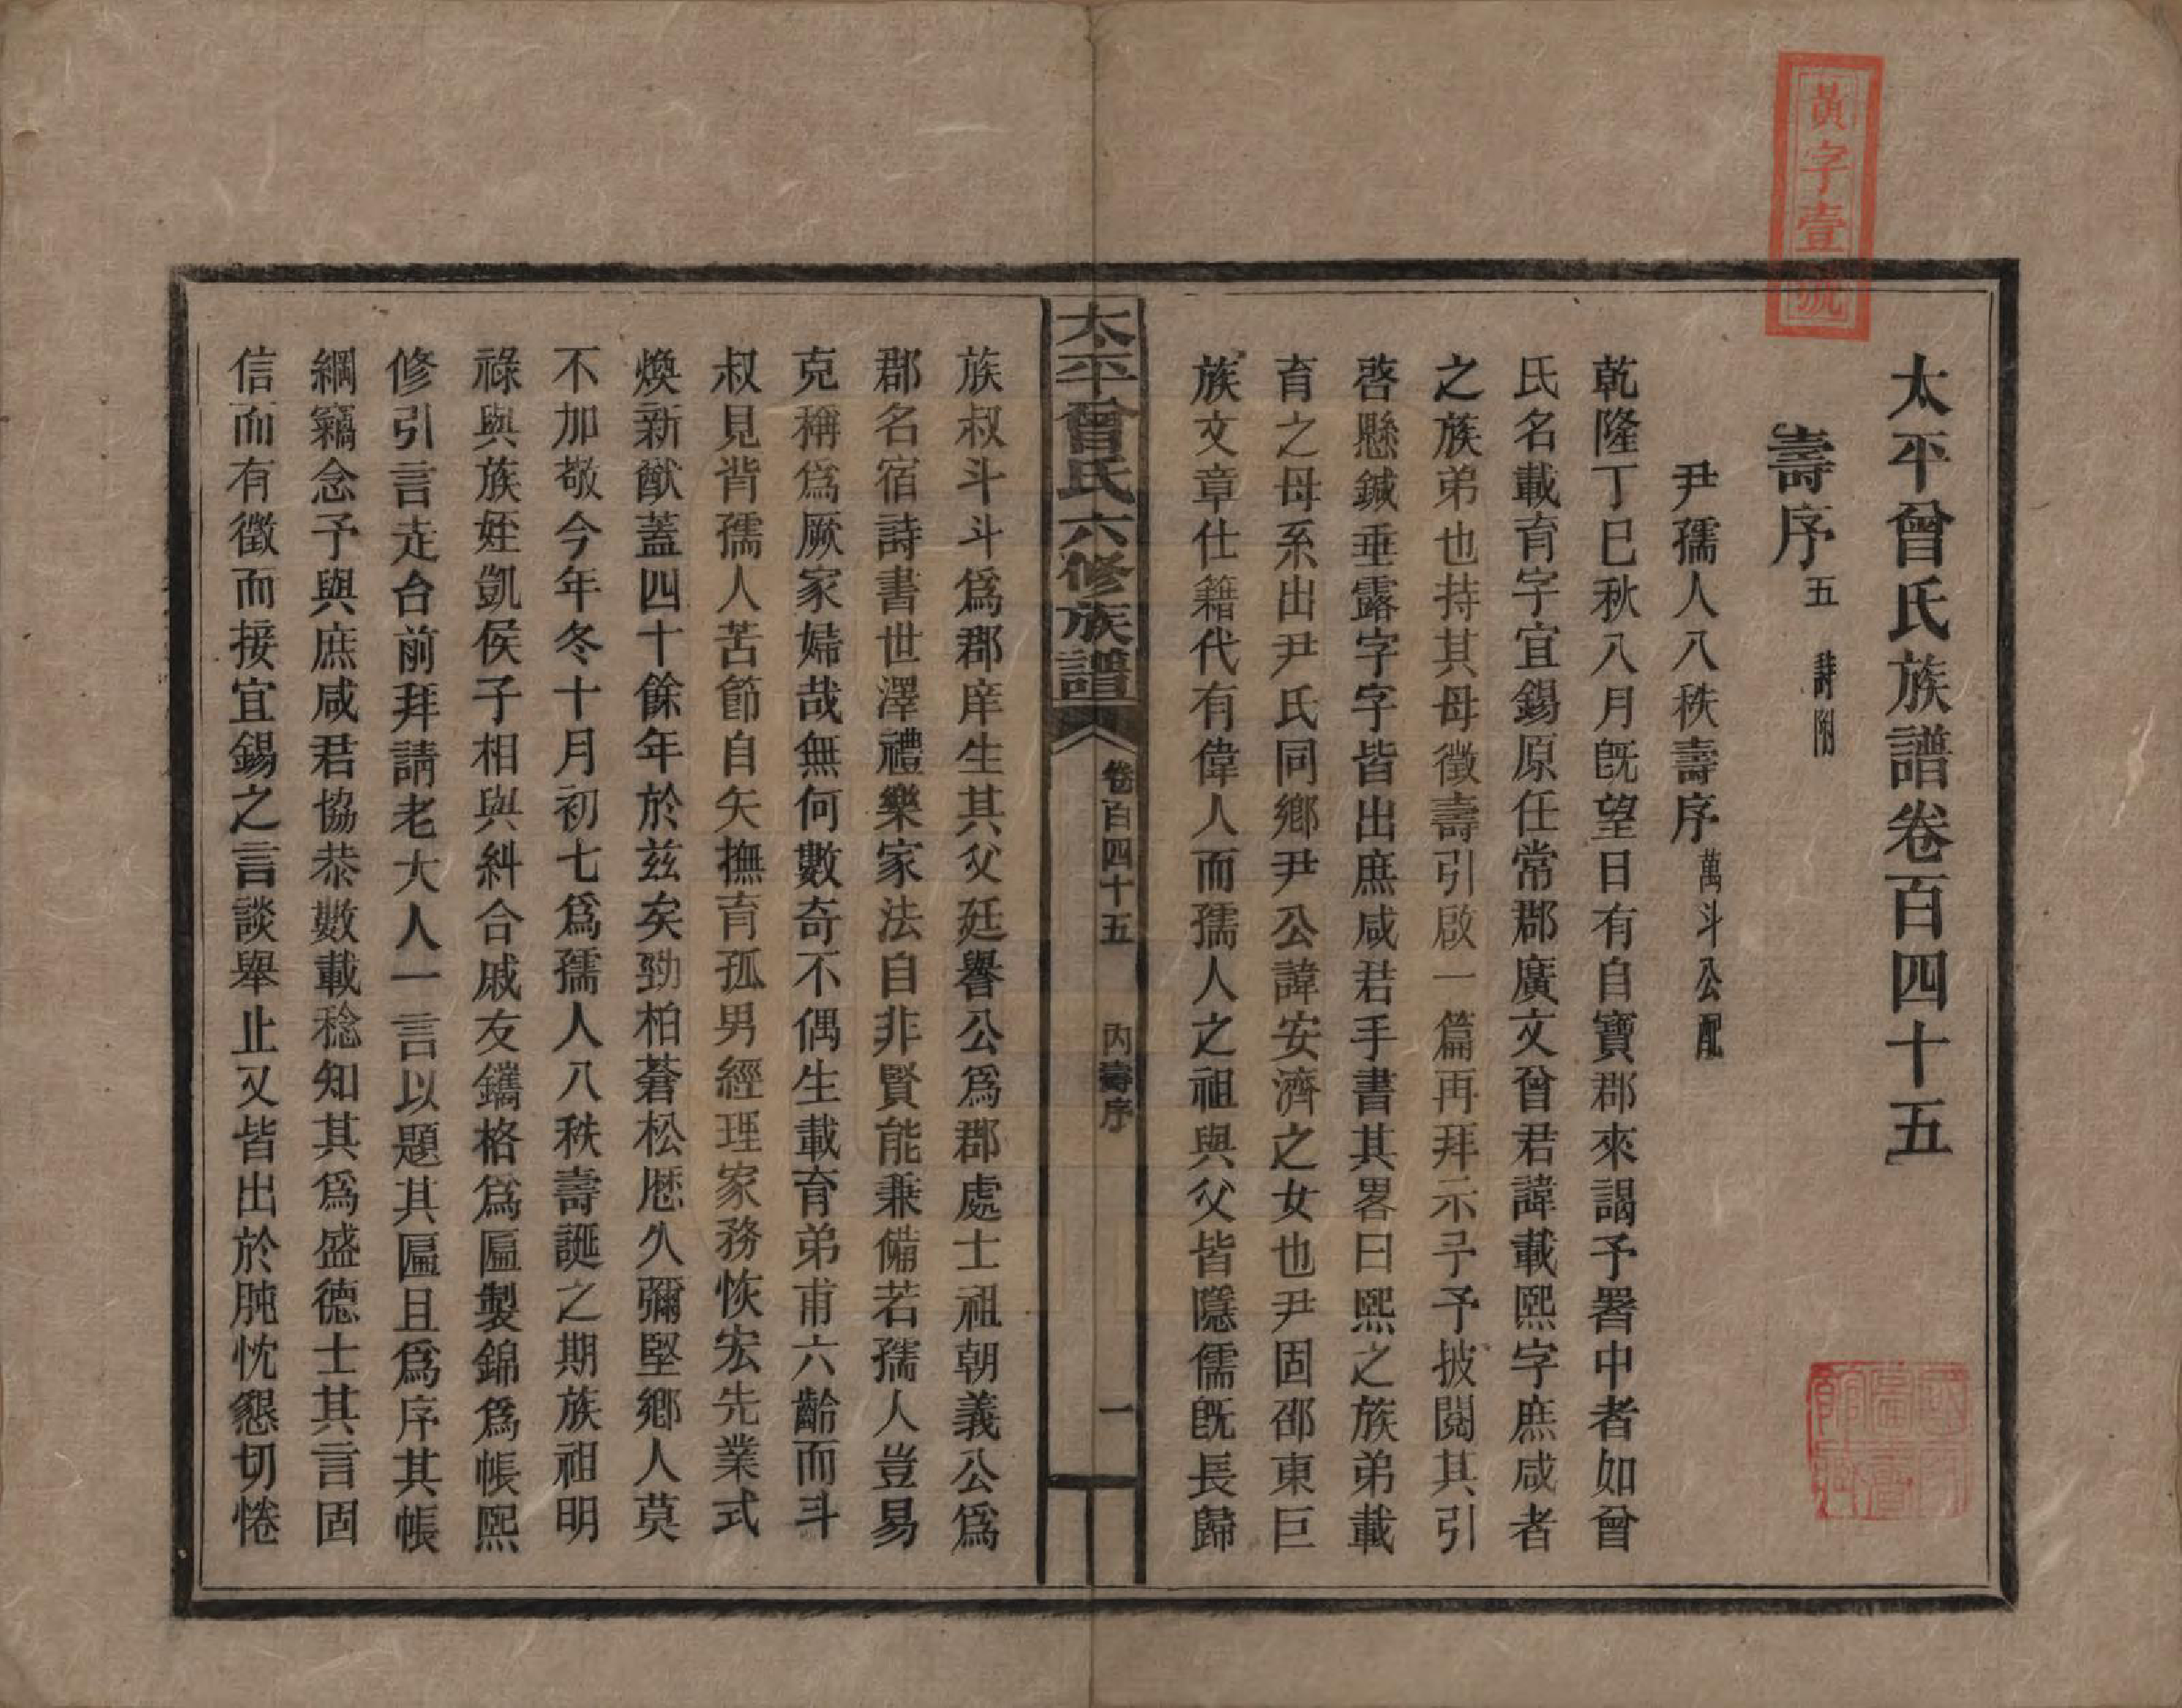 黃字壹號
太平曾氏族譜卷百四十五
壽序五 詩附
尹孺人八秩壽序萬斗公配
乾隆丁巳秋八月旣望日有自寶郡來謁予署中者如曾
氏名載育字宜錫原任常郡廣文曾君諱載熙字庶咸者
之族弟也持其母徵壽引啟一篇再拜示予予披閱其引
啓懸鍼垂露字字皆出庶咸君手書其畧曰熙之族弟載
育之母系出尹氏同鄉尹公諱安濟之女也尹固邵東巨
族文章仕籍代有偉人而孺人之祖與父皆隱儒旣長歸
太平曾氏六修族譜
卷百四十五 內壽序 一
族叔斗斗爲郡庠生其父廷譽公爲郡處士祖朝義公爲
郡名宿詩書世澤禮樂家法自非賢能兼備若孺人豈易
克稱爲厥家婦哉無何數奇不偶生載育弟甫六齡而斗
叔見背孺人苦節自矢撫育孤男經理家務恢宏先業式
煥新猷蓋四十餘年於茲矣勁柏蒼松歷久彌堅鄉人莫
不加敬今年冬十月初七爲孺人八秩壽誕之期族祖明
祿與族姪凱侯子相與糾合戚友鐫格爲匾製錦爲帳熙
修引言走台前拜請老大人一言以題其匾且爲序其帳
綱竊念予與庶咸君協恭數載稔知其爲盛德士其言固
信而有徵而接宜錫之言談舉止又皆出於肫忱懇切惓